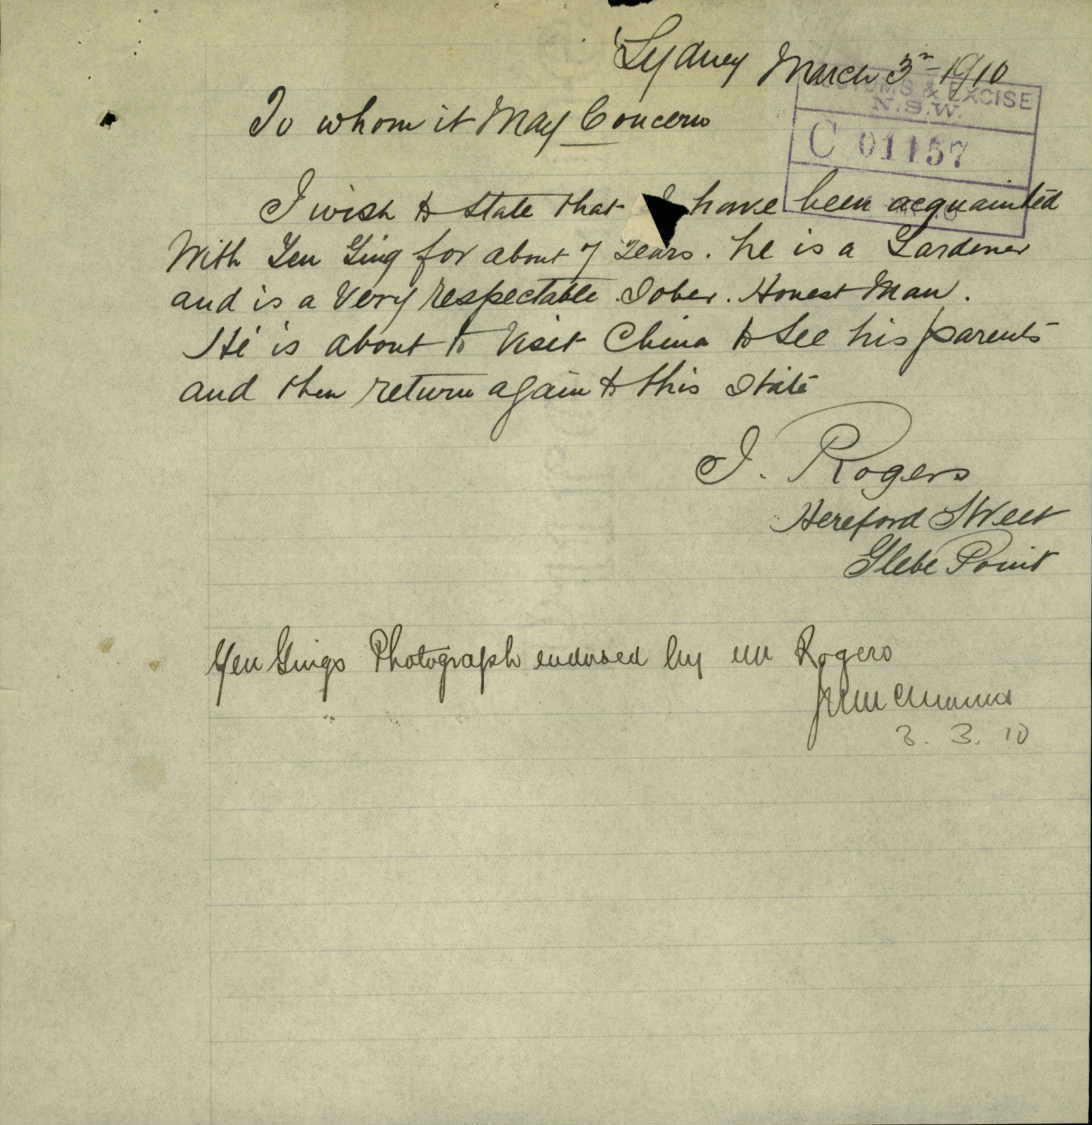 Sydney March 3rd - 1910
CUSTOMS & EXCISE
N.S.W.
C 01157
To whom it May Concern
I wish to state that I have been acquainted
With Yen Ging for about 7 years. he is a Gardener
and is a Very respectable. Sober. Honest Man.
He is about to Visit China to See his parents
and then return again to this State
J. Rogers
Hereford Street
Glebe Point
Yen Gings Photograph endorsed by Mr Rogers
3. 3. 10